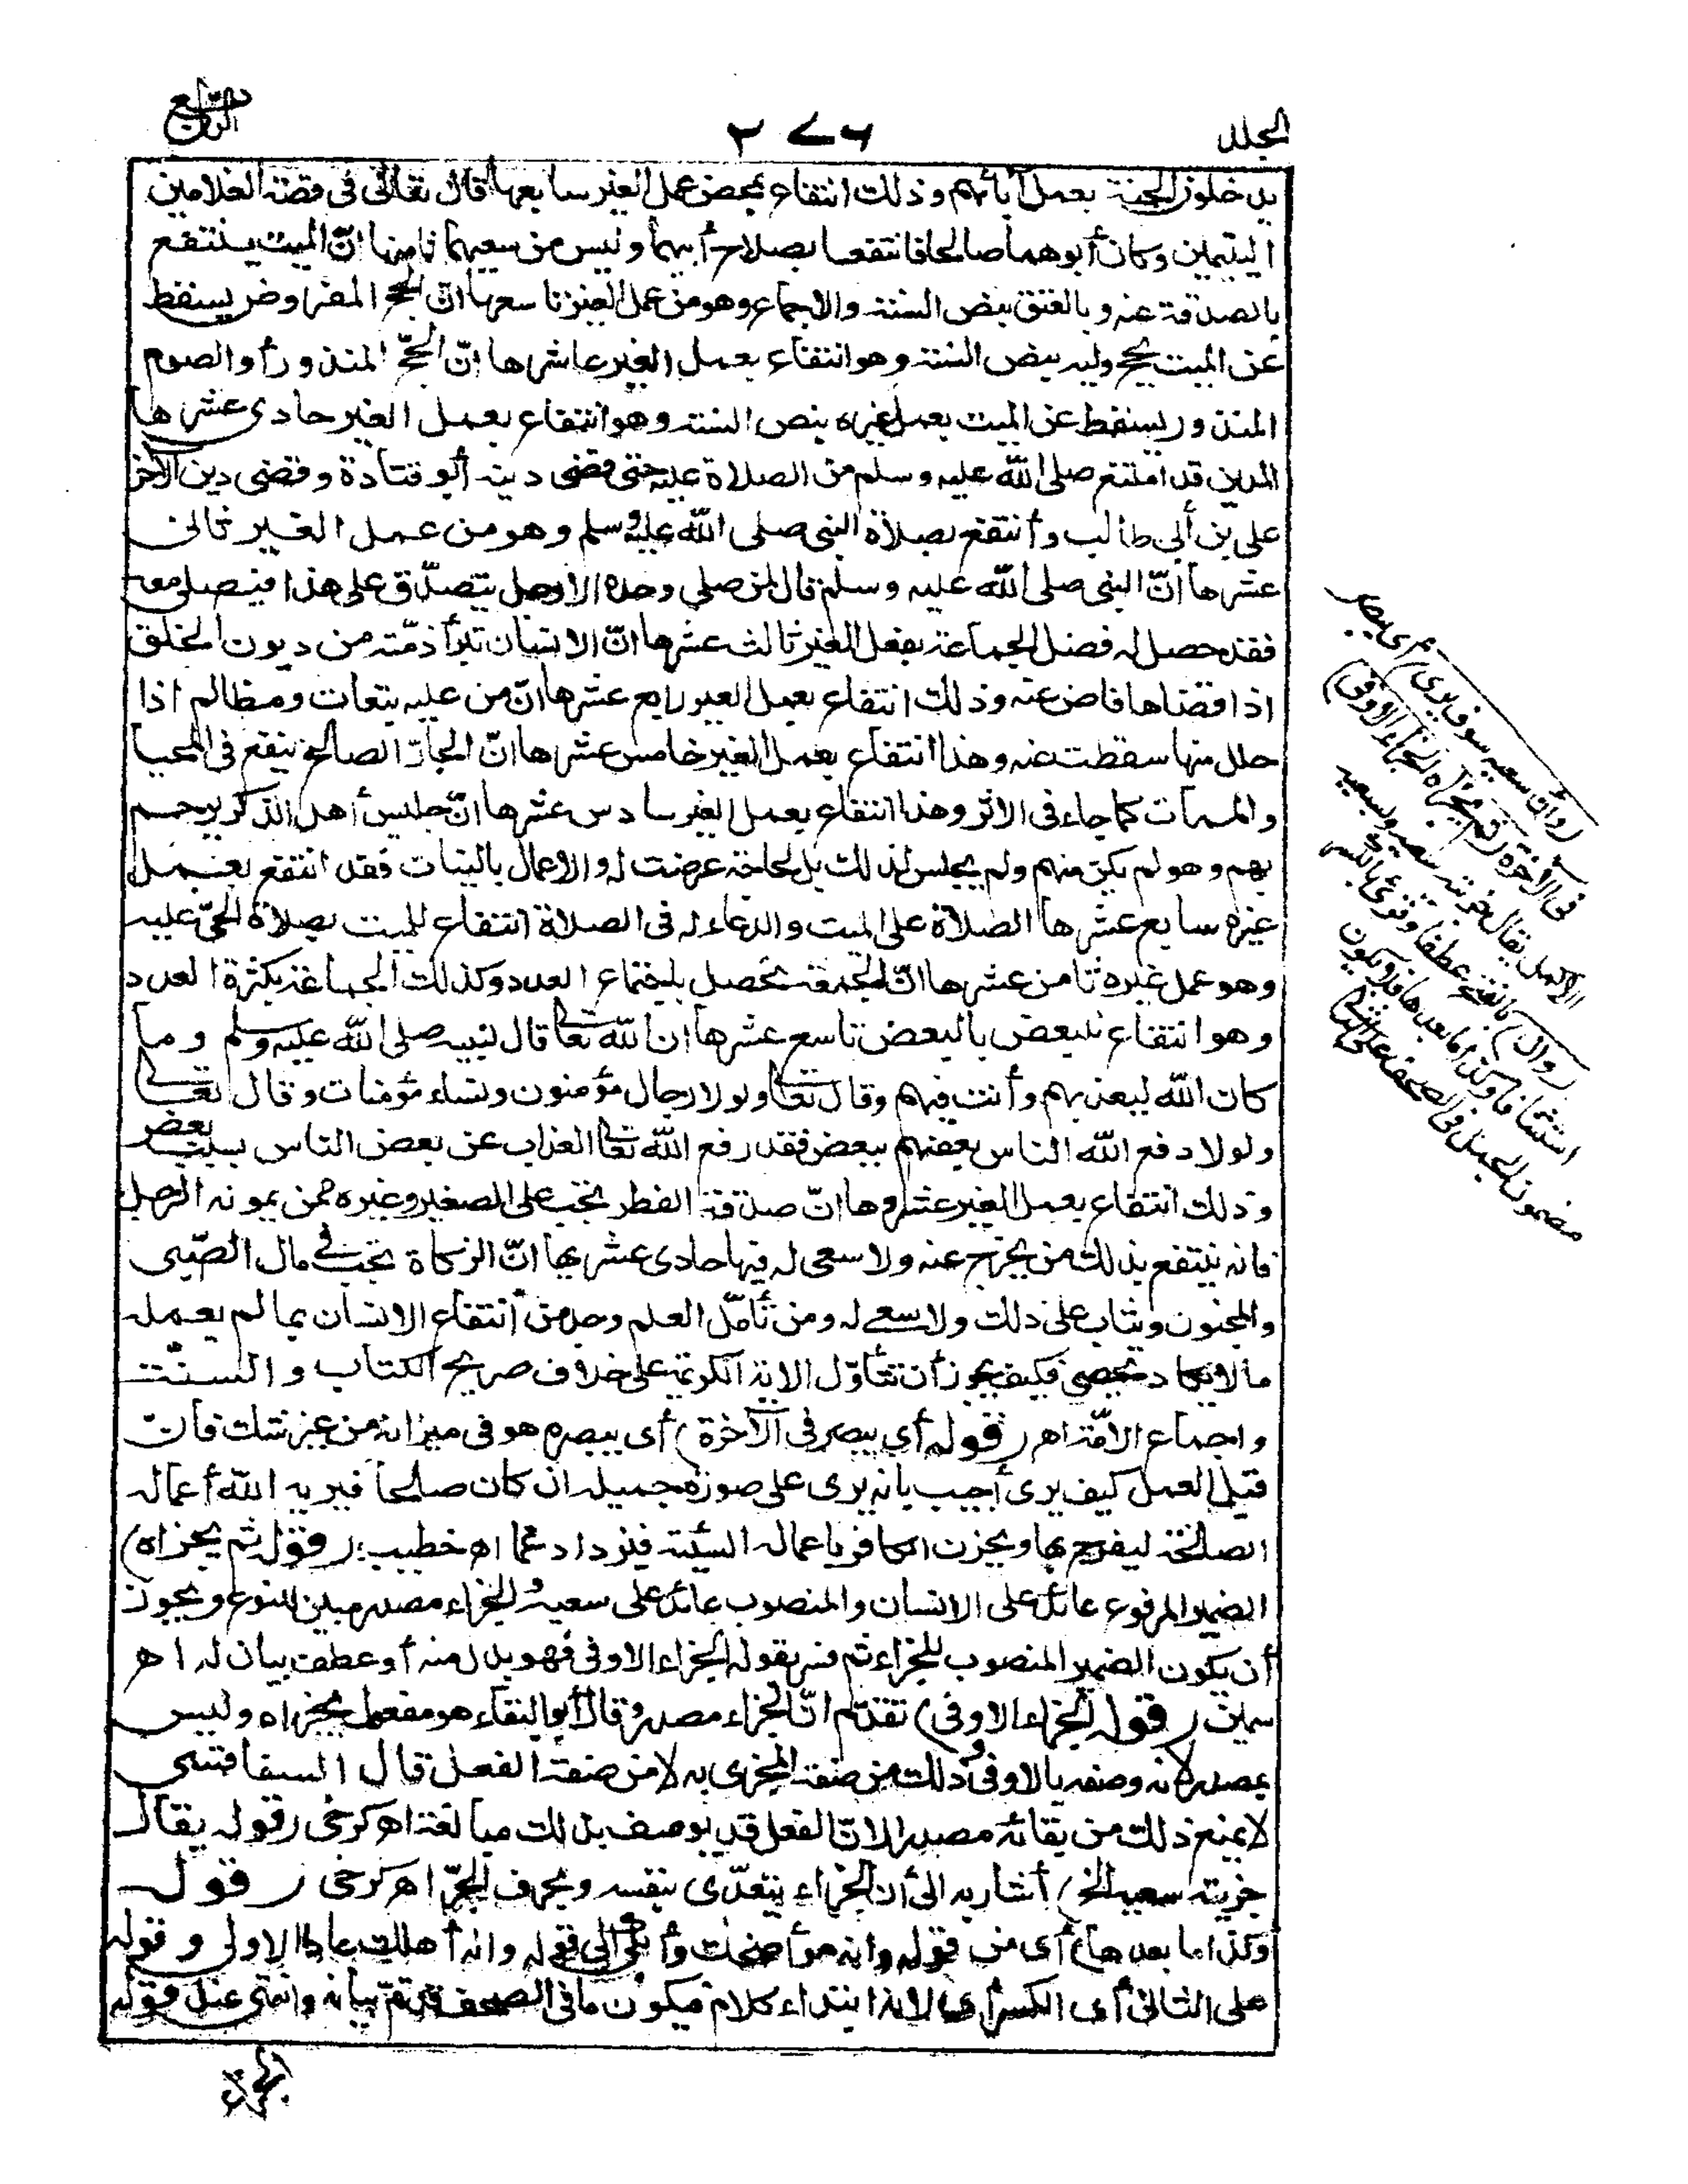 المجلد
٢٧٦
الرابع
يدخلون الجنة بعمل آبائهم وذلك انتفاع بمحض عمل الغير سابعها قال تعالى فى قصة الغلامين
اليتيمين وكان أبوهما صالحا فانتفعا بصلاح أبيهما وليس من سعيهما ثامنها انّ الميت ينتفع
بالصدقة عنه وبالعتق بنص السنة والاجماع وهو من عمل الغير تاسعها انّ الحج المفروض يسقط
عن الميت بحج وليه بنص السنة وهو انتفاع بعمل الغير عاشرها انّ الحجّ المنذور أو الصوم
المنذور يسقط عن الميت بعمل غيره بنص السنة وهو انتفاع بعمل الغير حادى عشرها
المدين قد امتنع صلى الله عليه وسلم من الصلاة عليه حتى قضى دينه أبو قتادة وقضى دين الآخر
على بن أبى طالب وانتفع بصلاة النبى صلى الله عليه وسلم وهو من عمل الغير ثانى
عشرها انّ النبى صلى الله عليه وسلم قال لمن صلى وحده الا رجل يتصدّق على هذا فيصلى معه
فقد حصل له فضل الجماعة بفعل الغير ثالث عشرها انّ الانسان تبرأ ذمّته من ديون الخلق
اذا قضاها قاض عنه وذلك انتفاع بعمل الغير رابع عشرها انّ من عليه تبعات ومظالم اذا
حلل منها سقطت عنه وهذا انتفاع بعمل الغير خامس عشرها انّ الجار الصالح ينفع فى المحيا
والممات كما جاء فى الاثر وهذا انتفاع بعمل الغير سادس عشرها انّ جليس أهل الذكر يرحم
بهم وهو لم يكن منهم ولم يجلس لذلك بل لحاجة عرضت له والاعمال بالنيات فقد انتفع بعمل
غيره سابع عشرها الصلاة على الميت والدعاء له فى الصلاة انتفاع للميت بصلاة الحىّ عليه
وهو عمل غيره ثامن عشرها انّ الجمعة تحصل باجتماع العدد وكذلك الجماعة بكثرة العدد
وهو انتفاع للبعض بالبعض تاسع عشرها ان الله تعالى قال لنبيه صلى الله عليه وسلم وما
كان الله ليعذبهم وأنت فيهم وقال تعالى ولولا رجال مؤمنون ونساء مؤمنات وقال تعالى
ولولا دفع الله الناس بعضهم ببعض فقد رفع الله تعالى العذاب عن بعض الناس بسبب بعض
وذلك انتفاع بعمل الغير عشروها انّ صدقة الفطر تجب على الصغير وغيره ممن يمونه الرجل
فانه ينتفع بذلك من يخرج عنه ولا سعى له فيها حادى عشريها انّ الزكاة تجب فى مال الصّبى
والمجنون ويثاب على ذلك ولا سعى له ومن تأمّل العلم وجد من انتفاع الانسان بما لم يعمله
مالا يكاد يحصى فكيف يجوز أن نتأوّل الاية الكريمة على خلاف صريح الكتاب والسنّة
واجماع الامّة اهـ (قوله أى يبصر فى الآخرة) أى يبصره هو فى ميزانه من غير شك فان
قيل العمل كيف يرى أجيب بانه يرى على صورة جميلة ان كان صالحا فيريه الله أعماله
الصالحة ليفرح بها ويحزن الكافر باعماله السيئة فيزداد غما اهـ خطيب (قوله ثم يجزاه)
الضمير المرفوع عائد على الانسان والمنصوب عائد على سعيه والجزاء مصدر مبين للنوع ويجوز
أن يكون الضمير المنصوب للجزاء ثم فسر بقوله الجزاء الاوفى فهو بدل منه أو عطف بيان له اهـ
سمين (قوله الجزاء الاوفى) تقدّم انّ الجزاء مصدر وقال أبو البقاء هو مفعول يجزاه وليس
بمصدر لانه وصفه بالاوفى وذلك من صفة المجزى به لا من صفة الفعل قال السفاقسى
لا يمنع ذلك من بقائه مصدرا لانّ الفعل قد يوصف بذلك مبالغة اهـ كرخى (قوله يقال
جزيته سعيه الخ) أشار به الى أن الجزاء يتعدّى بنفسه وبحرف الجرّ اهـ كرخى (قوله
وكذا ما بعدها) أى من قوله وانه هو أضحك وأبكى الى قوله وانه أهلك عادا الاولى وقوله
على الثانى أى الكسر أى لانه ابتداء كلام فيكون ما فى الصحف قد تمّ بيانه وانتهى عند قوله
(وأن سعيه سوف يرى) أى يبصر
فى الآخرة (ثم يجزاه الجزاء الاوفى)
الاكمل يقال جزيته سعيه وبسعيه
(وان) بالفتح عطفا وقرئ بالكسر
استئنافا وكذا ما بعدها فلا يكون
مضمون الجمل فى الصحف على الثانى